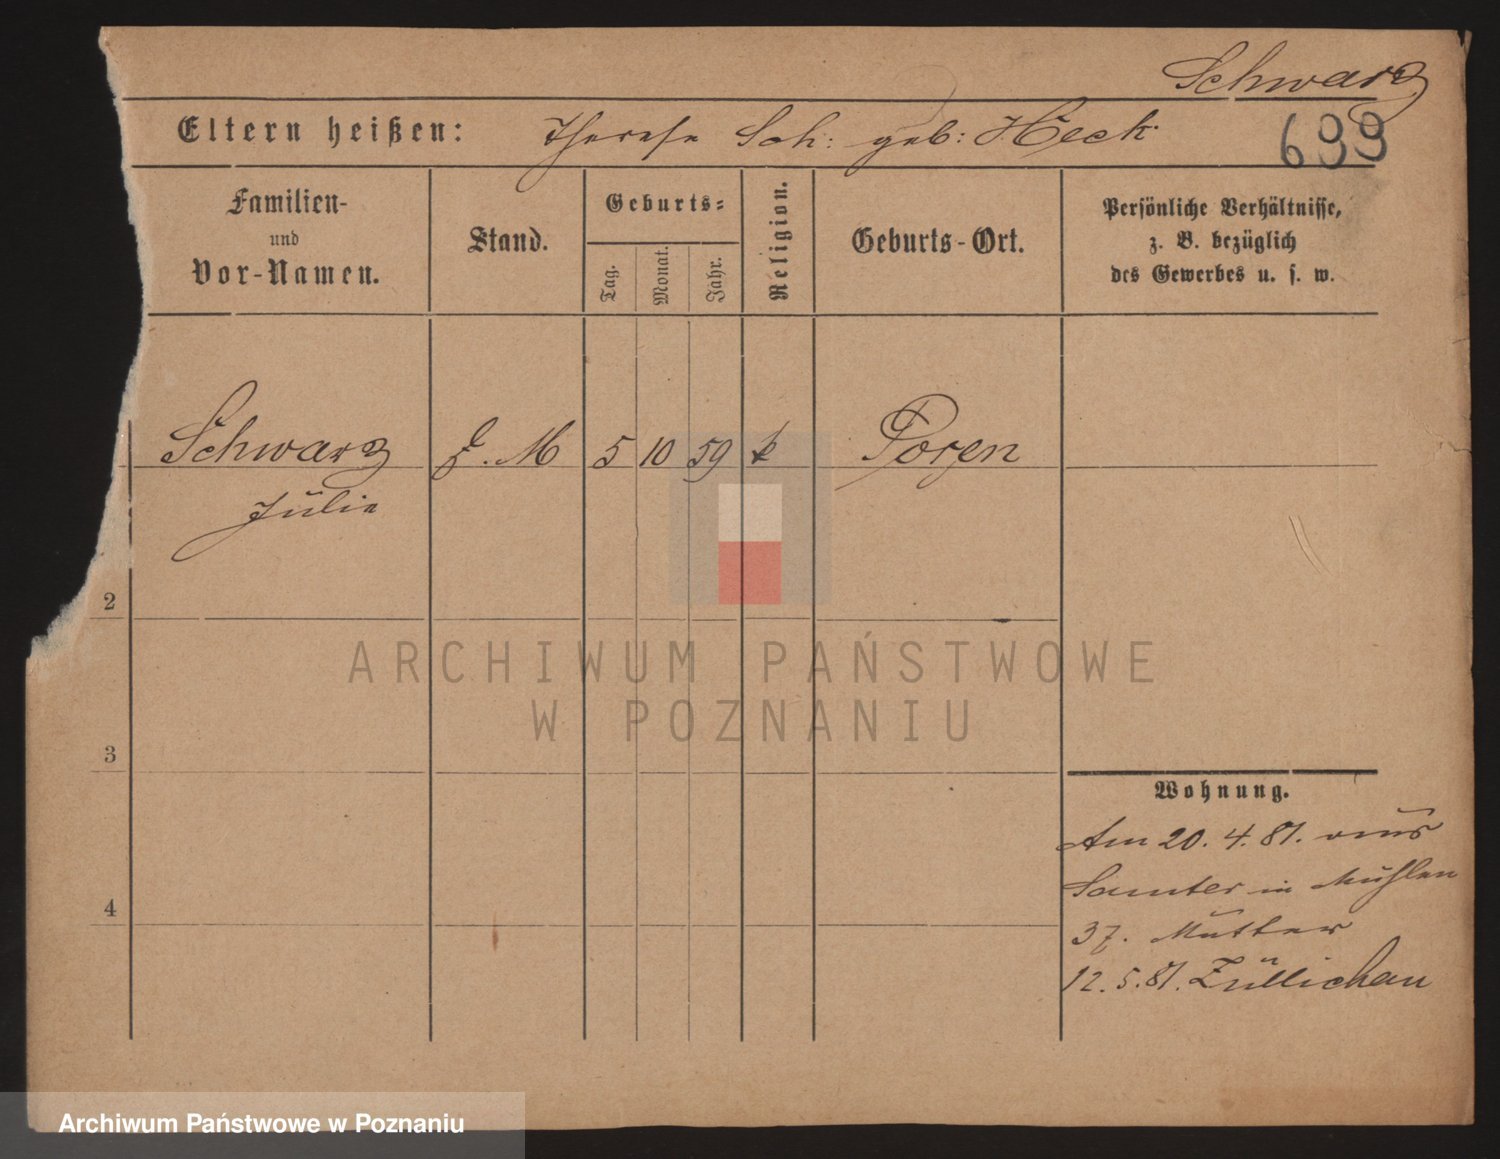 Schwarz
Eltern heißen: Therese Sch: geb: Heck
699
Familien-
und
Vor-Namen.
Stand.
Geburts-
Tag.
Monat.
Jahr.
Religion.
Geburts-Ort.
Persönliche Verhältnisse,
z. B. bezüglich
des Gewerbes u. s. w.
Schwarz M 5 10 59 k Posen
Julie
2
3
4
Wohnung.
Am 20. 4. 81. aus
Samter in Mühlen
37. Mutter
12. 5. 81. Züllichau
ARCHIWUM PAŃSTWOWE
W POZNANIU
Archiwum Państwowe w Poznaniu